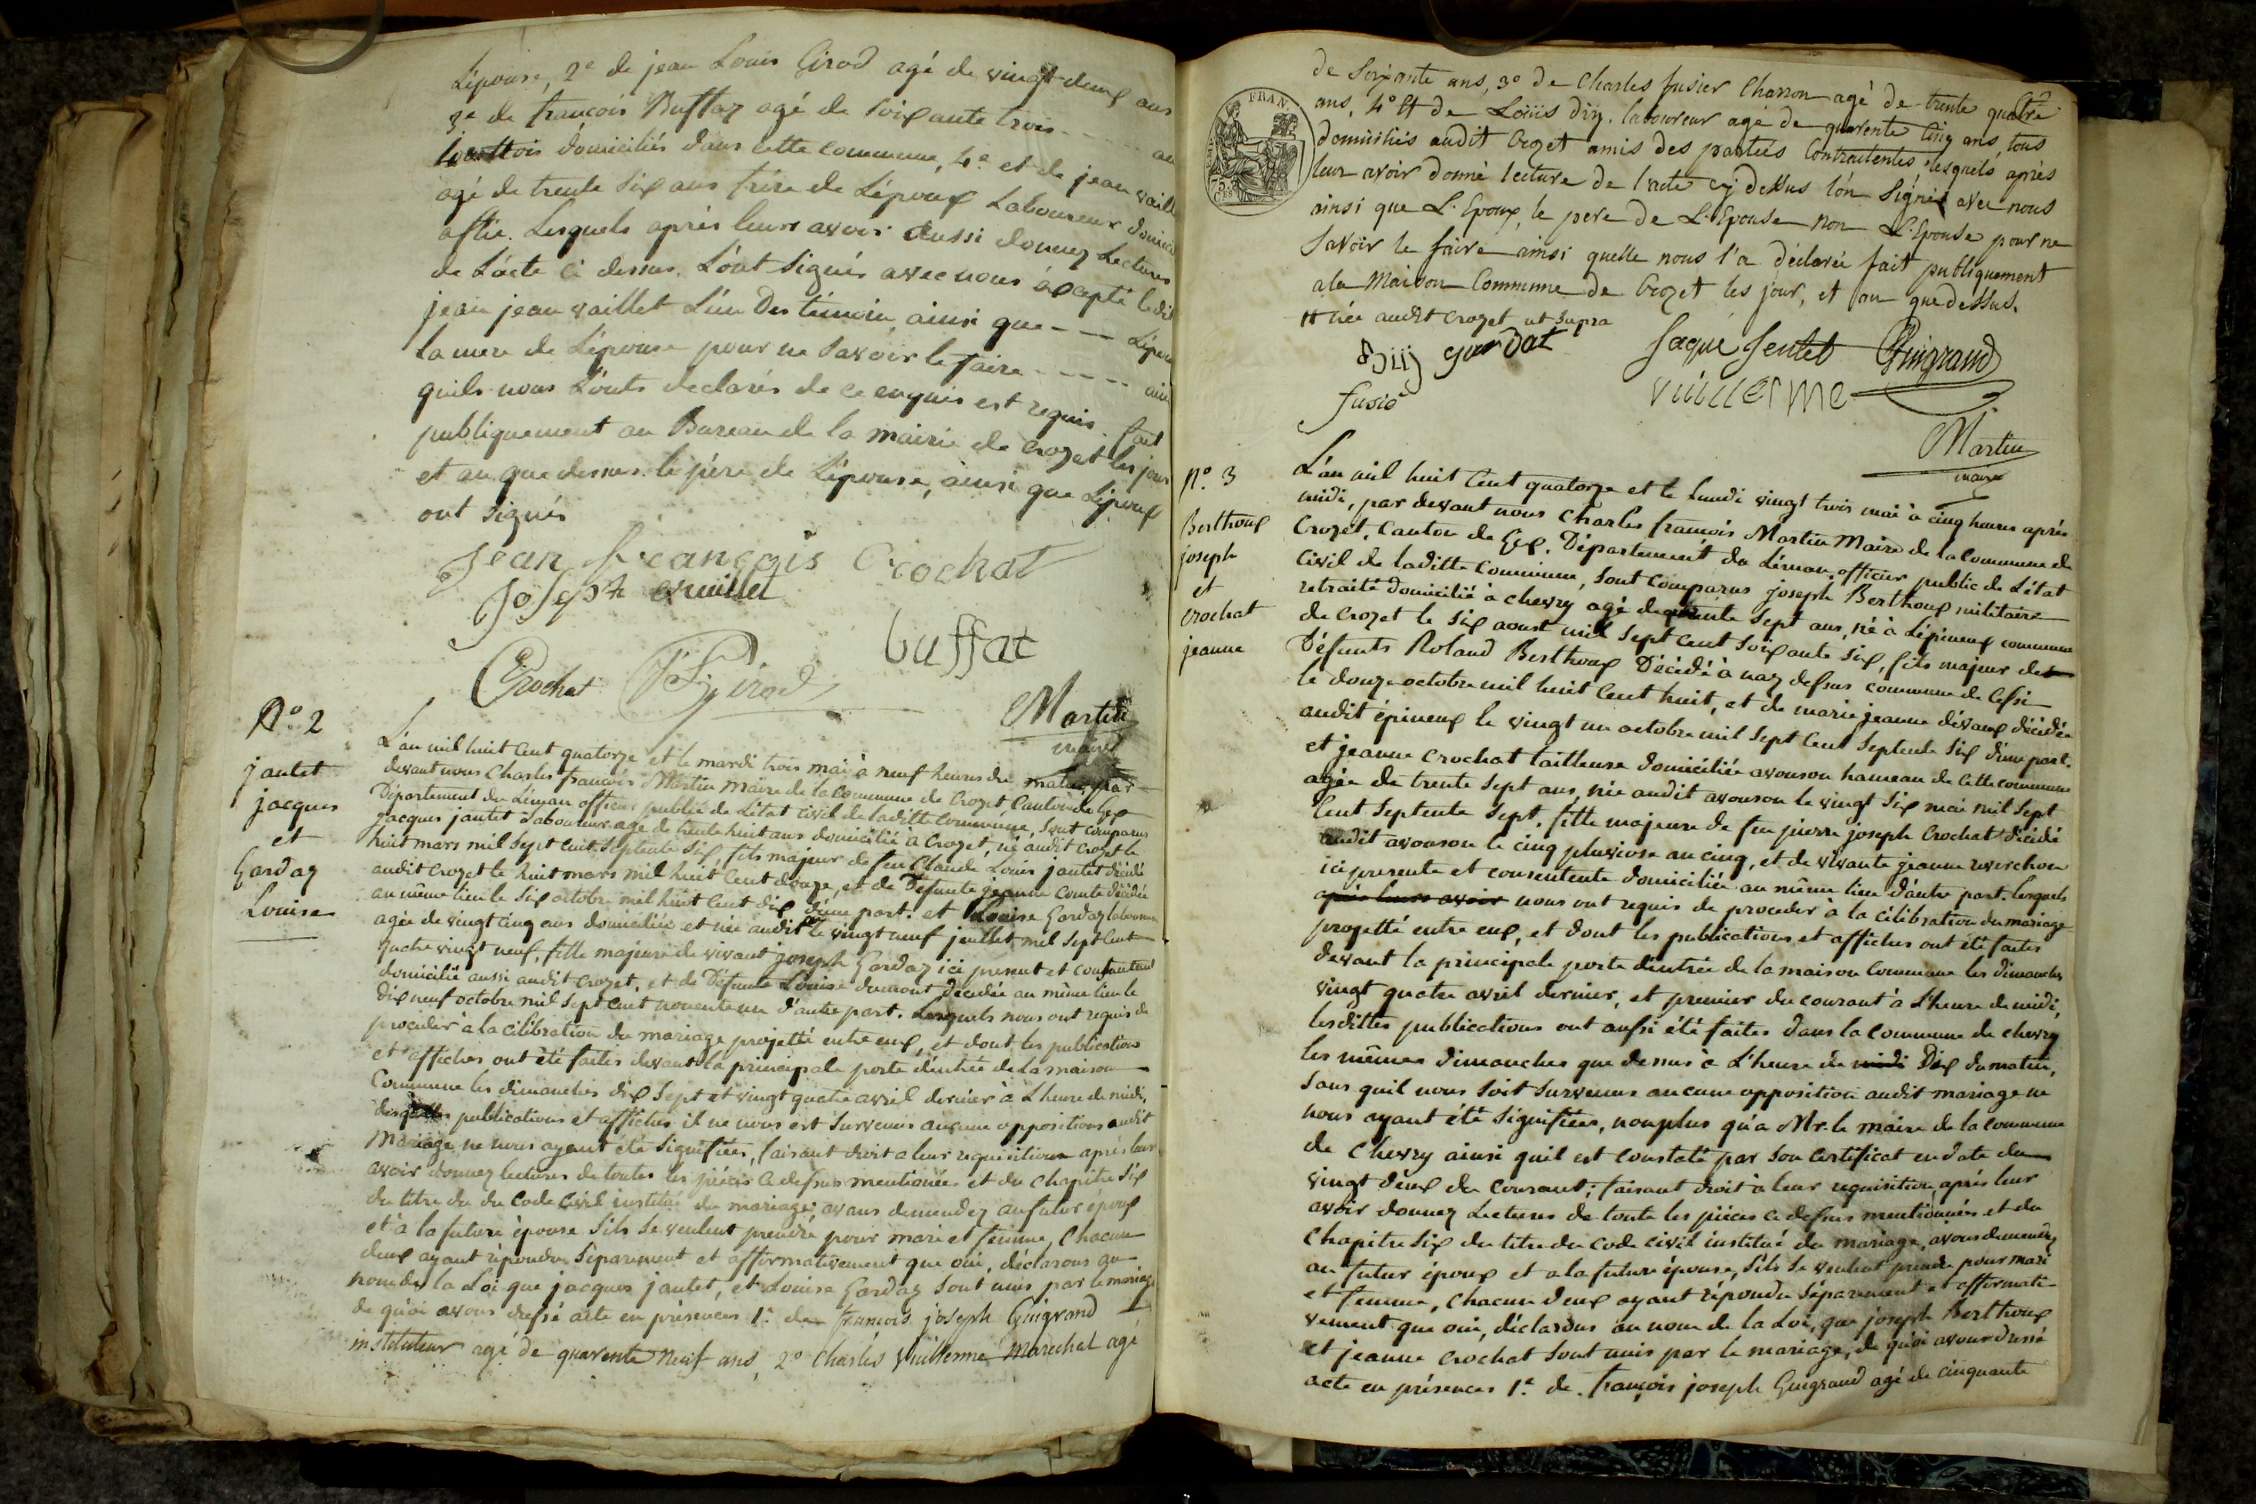 L'épouse, 2e de jean Louis Girod agé de vingt deux ans
3e de françois Buffaz agé de soixante trois
tous trois domiciliés dans cette commune, 4e et de jean vaill
agé de trente six ans frère de L'époux Laboureur
Lesquels après leurs avoir aussi donnez Lectures
de L'acte ci dessus. L'ont signés avec nous àxcepté ledit
jean vaillet L'un Des témoin, ainsi que
La mere de L'épouse pour ne savoir le faire
quils nous L'onts declarés de ce enquis est requis. fait
publiquement au Bureau de la mairie de crozet les jour
et an que dessus. le père de L'épouse, ainsi que L'époux
ont signés
jean françois Crochat
joseph vuillet
buffat
Crochat Girod
Martin
maire
No. 2
jantet
jacques
et
Gardaz
Louise
L'an mil huit cent quatorze et le mardi trois mai à neuf heures du matin, par
devant nous Charles françois Martin Maire de la commune de Crozet Canton de Gex
Département du Léman officier public de L'état civil de laditte Commune, sont comparus
jacques jantet Laboureur agé de trente huit ans domicilié à Crozet, né audit Crozet le
huit mars mil sept cent septente six, fils majeur de feu Claude Louis jantet décédé
audit Crozet le huit mars mil huit Cent douze, et de Défunte jeanne Comte décédée
au même lieu le six octobre mil huit Cent dix d'une part. et Louise Gardaz
agée de vingt cinq ans domiciliée et née audit le vingt neuf juillet mil sept Cent
quatre vingt neuf, fille majeure de vivant joseph Gardaz ici present et consentant
domicilié aussi audit Crozet, et de Défunte Louise dumont Décédée au même lieu le
dix neuf octobre mil sept cent nonente un d'autre part. Lesquels nous ont requis de
proceder à la célébration du mariage projetté entre eux, et dont les publications
et affiches ont été faites devant la principale porte d'entrée de la maison
Commune les dimanches dix sept et vingt quatre avril dernier à L'heure de midi,
publications et affiches il ne nous est survenus aucune oppositions audit
Mariage, ne nous ayant été signifiées, faisant droit a leur requisition après leur
avoir donnez lectures de toutes les pièces ci dessus mentionées et du chapitre six
du titre du du Code Civil institué du mariage; avons demendez au futur époux
et à la future épouse s'ils se veulent prendre pour mari et femme, Chacun
deux ayant répondu séparement et afformativement que oui, déclarons au
nom de la Loi que jacques jantet, et Louise Gardaz sont unis par le mariage
de quoi avons dressé acte en présences 1e. de françois joseph Guigrand
instituteur agé de quarente neuf ans, 2o Charles Vuillerme Marechal agé
de soixante ans, 3o de Charles fusier Charron agé de trente quatre
ans, 4o Et de Loüis Dizy. laboureur agé de quarente Cinq ans, tous
domiciliés audit Crozet amis des parties Contractentes lesquels après
leur avoir donné lecture de l'acte cy dessus l'on signés avec nous
ainsi que L'Epoux, le pere de L'Epouse non L'Epouse pour ne
savoir le faire ainsi quelle nous l'a déclarée fait publiquement
a la Maison Commune de Crozet les jour, et an que dessus.
née audit Crozet ut supra
FRAN.
75
gardat
jaque jentet Guigrand
fusie
vuillerme
Martin
maire
No. 3
Berthoux
joseph
et
crochat
jeanne
L'an mil huit Cent quatorze et le Lundi vingt trois mai à cinq heures après
midi, par devant nous Charles françois Martin Maire de la Commune de
Crozet, Canton de Gex. Département du Léman, officier public de L'état
civil de laditte Commune, sont Comparus joseph Berthoux militaire
retraité domicilié à chevry agé de quarente sept ans, né à L'épineux commune
de Crozet le six aoust mil sept Cent soixante six, fils majeur de
Défunts Roland Berthoux Décédé à naz dessus commune de Cessi
le douze octobre mil huit Cent huit, et de marie jeanne dévaux décédée
audit épineux le vingt un octobre mil sept Cent septente six d'une part.
et jeanne crochat tailleuse domiciliée avouson hameau de cette commune
agée de trente sept ans, née audit avouson le vingt six mai mil sept
Cent septente sept, fille majeure de feu pierre joseph Crochat décédé
audit avouson le cinq pluviose an cinq, et de vivante jeanne
ici presente et consentente domiciliée au même lieu d'autre part. lesquels
après leurs avoir nous ont requis de proceder à la célébration du mariage
projetté entre eux, et dont les publications et affiches ont été faites
devant la principale porte d'entrée de la maison Commune les dimanches
vingt quatre avril dernier, et premier du courant à L'heure de midi,
lesdittes publications ont aussi été faites dans la Commune de chevry
les mêmes dimanches que dessus à L'heure de midi Dix du matin,
sans quil nous soit survenus aucune opposition audit mariage ne
nous ayant été signifiées, nonplus qu'a Mr. le maire de la Commune
de Chevry ainsi quil est constaté par son certificat en date du
vingt deux du courant; faisant droit à leur requisition, après leur
avoir donnez Lectures de toute les pièces ci dessus mentionnées et du
Chapitre six du titre du Code civil institué du mariage, avons demendez
au futur époux et a la future épouse, s'ils se veulent prendre pour mari
et femme, Chacun deux ayant répondu séparement et afformati-
vement que oui, déclarons au nom de la Loi, que joseph Berthoux
et jeanne Crochat sont unis par le mariage, de quoi avons dressé
acte en présences 1e. de françois joseph Guigrand agé de cinquante